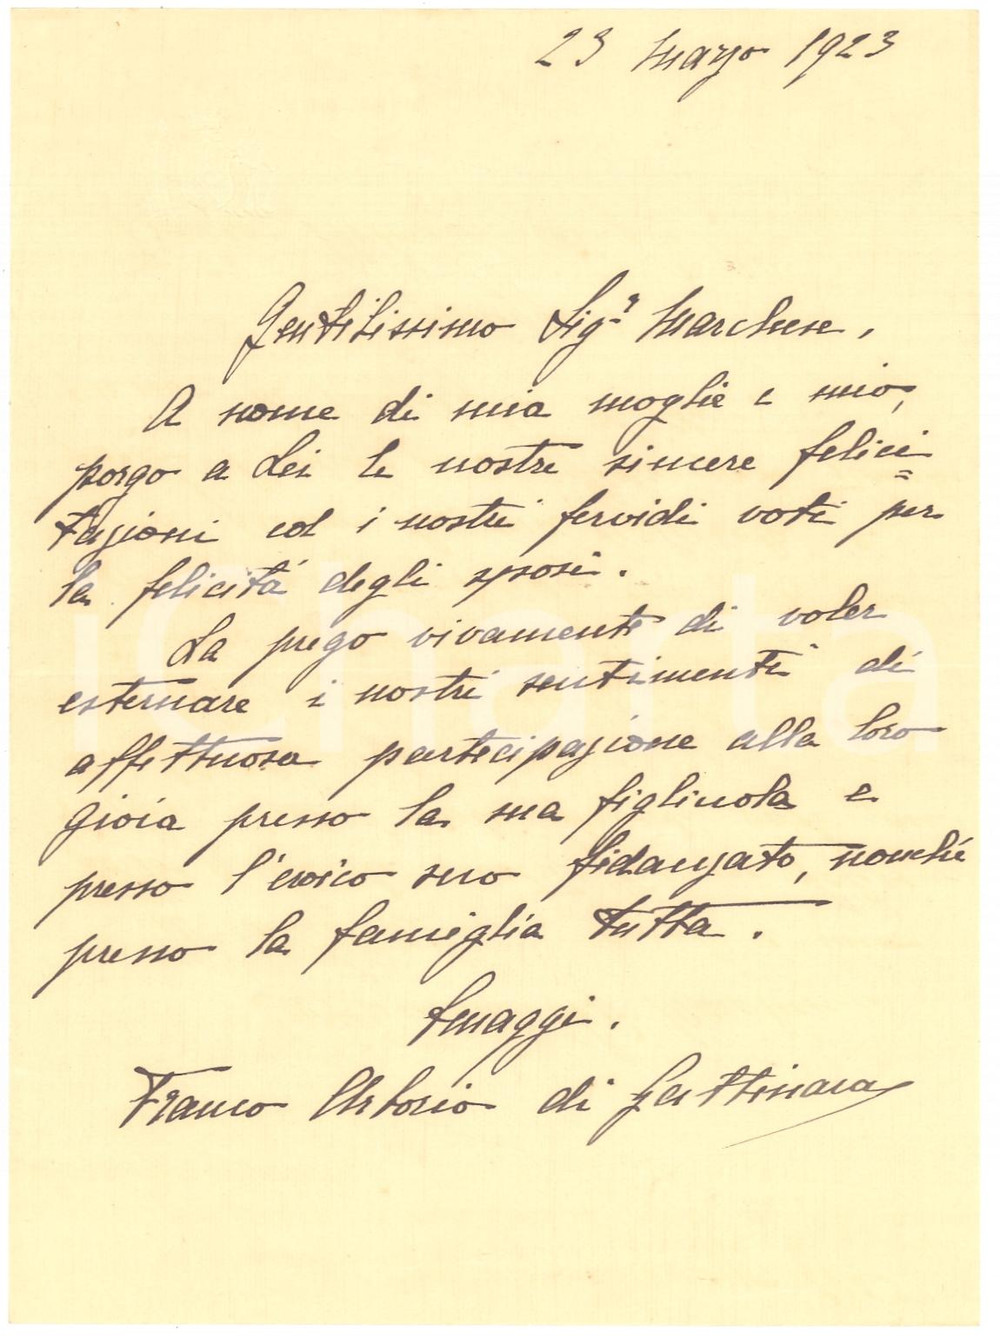 23 Marzo 1923
Gentilissimo Sigr Marchese,
A nome di mia moglie e mio,
porgo a Lei le nostre sincere felici=
tazioni ed i nostri fervidi voti per
la felicità degli sposi.
La prego vivamente di voler
esternare i nostri sentimenti di
affettuosa partecipazione alla loro
gioia presso la sua figliuola e
presso l'eroico suo fidanzato, nonché
presso la famiglia tutta.
Omaggi.
Franco Arborio di Gattinara
iCharta